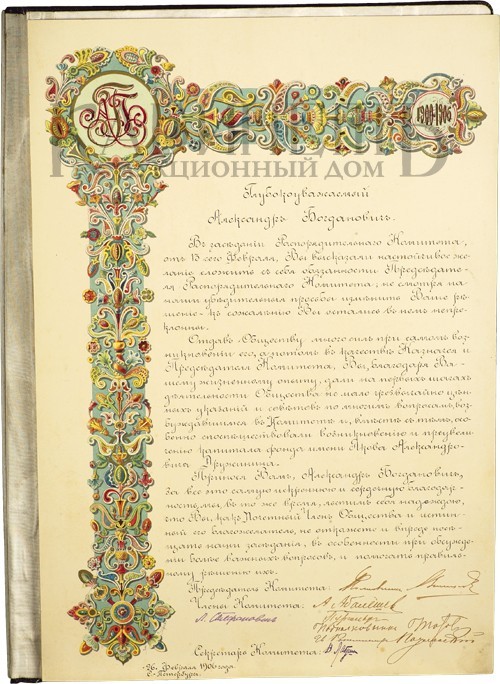 1900-1906
АУКЦИОННЫЙ ДОМ
Глубокоуважаемый
Александръ Богдановичъ.
Въ засѣданіи Распорядительнаго Комитета,
отъ 13 сего Февраля, Вы высказали настойчивое же-
ланіе сложить съ себя обязанности Предсѣдате-
ля Распорядительнаго Комитета; не смотря на
наши убѣдительныя просьбы измѣнить Ваше рѣ-
шеніе къ сожалѣнію Вы остались въ немъ непре-
клонны.
Отдавъ Обществу много силъ при самомъ воз-
никновеніи его, а потомъ въ качествѣ Казначея и
Предсѣдателя Комитета, Вы, благодаря Ва-
шему жизненному опыту, дали на первыхъ шагахъ
дѣятельности Общества не мало чрезвычайно цѣн-
ныхъ указаній и совѣтовъ по многимъ вопросамъ, воз-
буждавшимся въ Комитетѣ и, вмѣстѣ съ тѣмъ, осо-
бенно способствовали возникновенію и преувели-
ченію капитала фонда имени Якова Александро-
вича Дружинина.
Принося Вамъ, Александръ Богдановичъ,
за все это самую искреннюю и сердечную благодар-
ность, мы, въ то же время, льстимъ себя надеждою,
что Вы, какъ Почетный Членъ Общества и истин-
ный его благожелатель, не откажете и впредь посѣ-
щать наши засѣданія, въ особенности при обсужде-
ніи болѣе важныхъ вопросовъ, и помогать правиль-
ному рѣшенію ихъ.
Предсѣдатель Комитета:
Члены Комитета:
Секретарь Комитета:
26 Февраля 1906 года
С.-Петербургъ.